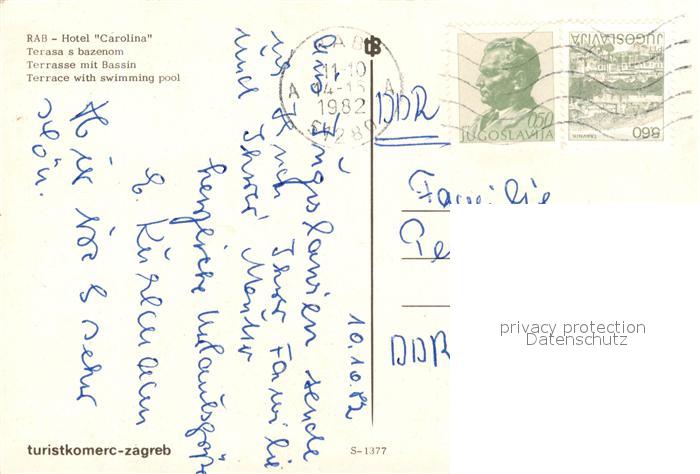 RAB – Hotel "Carolina"
Terasa s bazenom
Terrasse mit Bassin
Terrace with swimming pool
RAB
11-10
1982
51280
JUGOSLAVIJA
0,50
JUGOSLAVIJA
5,60
TRAVNIK
DDR
Familie
DDR
10.10.82
Aus Jugoslavien sende
ich Ihnen Ihrer Familie
und Ihrer Mutter
herzliche Urlaubsgrüße
Hier ist es sehr
schön.
privacy protection
Datenschutz
turistkomerc-zagreb
S-1377